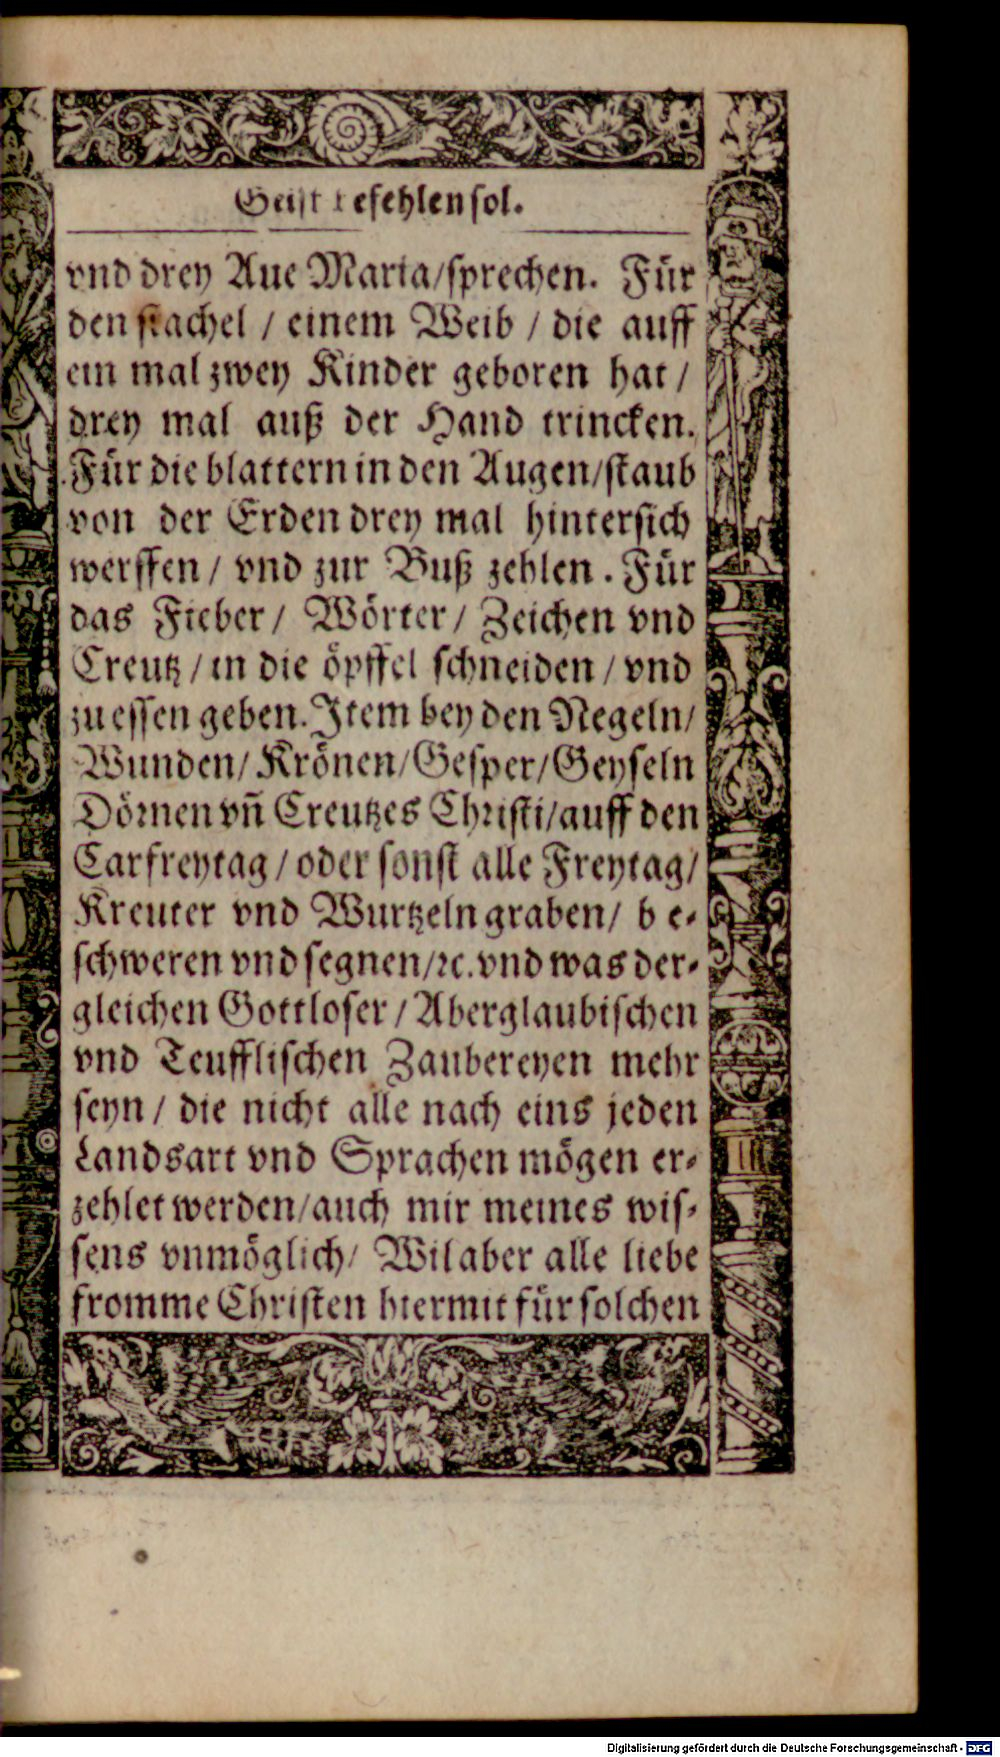 Geist befehlen sol.
vnd drey Aue Maria/sprechen. Für
den stachel / einem Weib / die auff
ein mal zwey Kinder geboren hat /
drey mal auß der Hand trincken.
Für die blattern in den Augen/staub
von der Erden drey mal hintersich
werffen / vnd zur Buß zehlen. Für
das Fieber / Wörter / Zeichen vnd
Creutz / in die öpffel schneiden / vnd
zu essen geben. Item bey den Negeln/
Wunden/ Krönen/Gesper/Geyseln
Dörnen vñ Creutzes Christi/auff den
Carfreytag / oder sonst alle Freytag/
Kreuter vnd Wurtzeln graben/ be-
schweren vnd segnen/ꝛc. vnd was der-
gleichen Gottloser / Aberglaubischen
vnd Teufflischen Zaubereyen mehr
seyn / die nicht alle nach eins jeden
Landsart vnd Sprachen mögen er-
zehlet werden/auch mir meines wis-
sens vnmöglich/ Wil aber alle liebe
fromme Christen hiermit für solchen
Digitalisierung gefördert durch die Deutsche Forschungsgemeinschaft - DFG